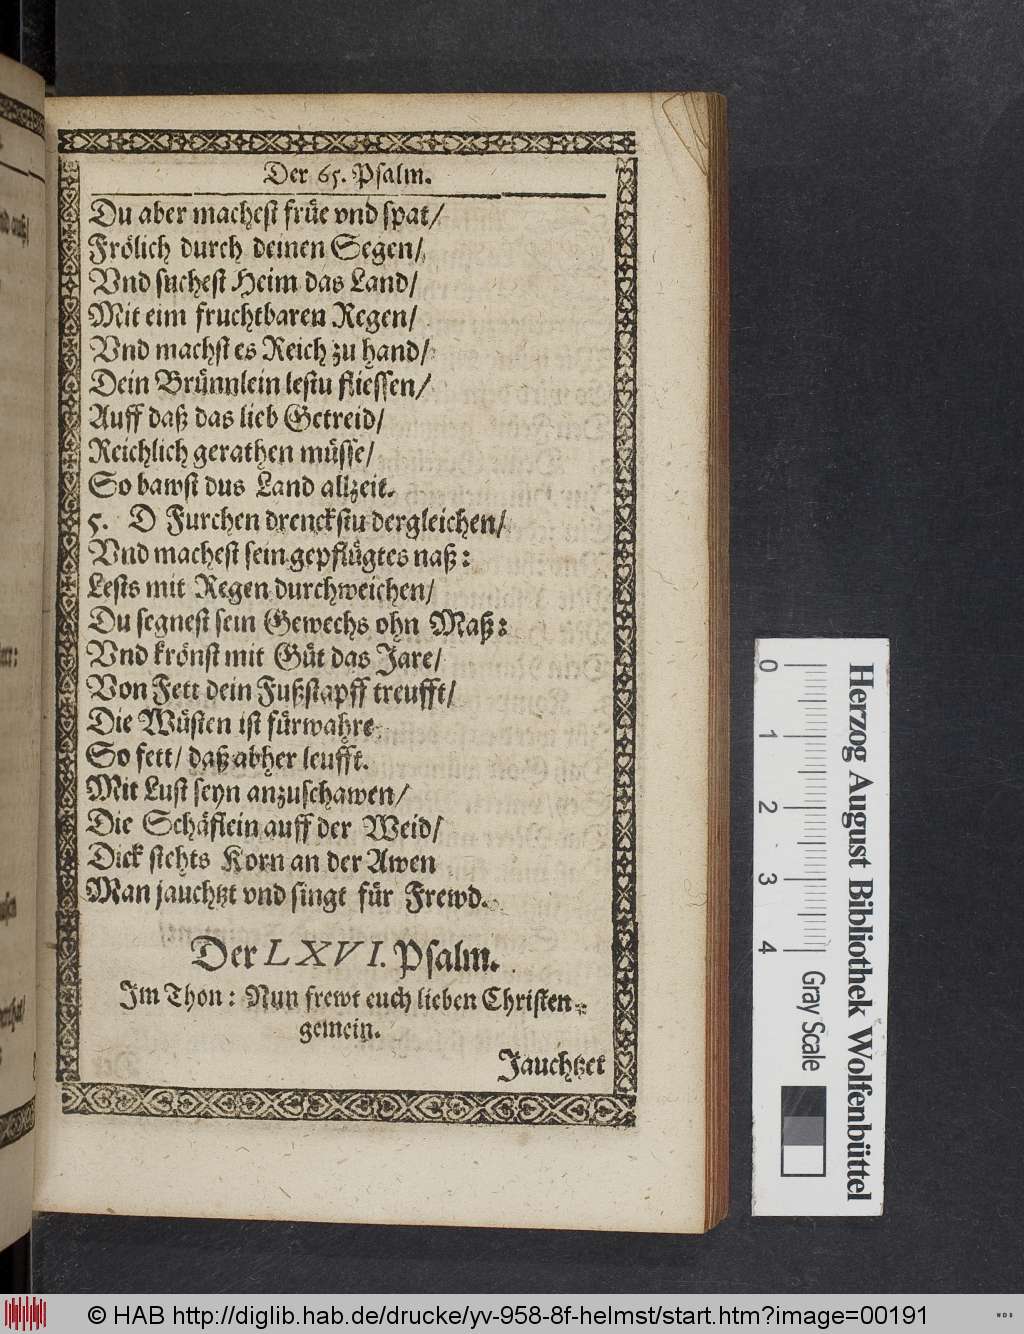 Der 65. Psalm.
Du aber machest früe vnd spat/
Frölich durch deinen Segen/
Vnd suchest Heim das Land/
Mit eim fruchtbaren Regen/
Vnd machst es Reich zu hand/
Dein Brünnlein lestu fliessen/
Auff daß das lieb Getreid/
Reichlich gerathen müsse/
So bawst dus Land allzeit.
5. D Furchen drenckstu dergleichen/
Vnd machest sein gepflügtes naß:
Lests mit Regen durchweichen/
Du segnest sein Gewechs ohn Maß:
Vnd krönst mit Güt das Jare/
Von Fett dein Fußstapff treufft/
Die Wüsten ist fürwahre
So fett/ daß abher leufft.
Mit Lust seyn anzuschawen/
Die Schäflein auff der Weid/
Dick stehts Korn an der Awen
Man jauchtzt vnd singt für Frewd.
Der LXVI. Psalm.
Im Thon: Nun frewt euch lieben Christen-
gemein.
Jauchtzet
0 1 2 3 4
Gray Scale
Herzog August Bibliothek Wolfenbüttel
© HAB http://diglib.hab.de/drucke/yv-958-8f-helmst/start.htm?image=00191